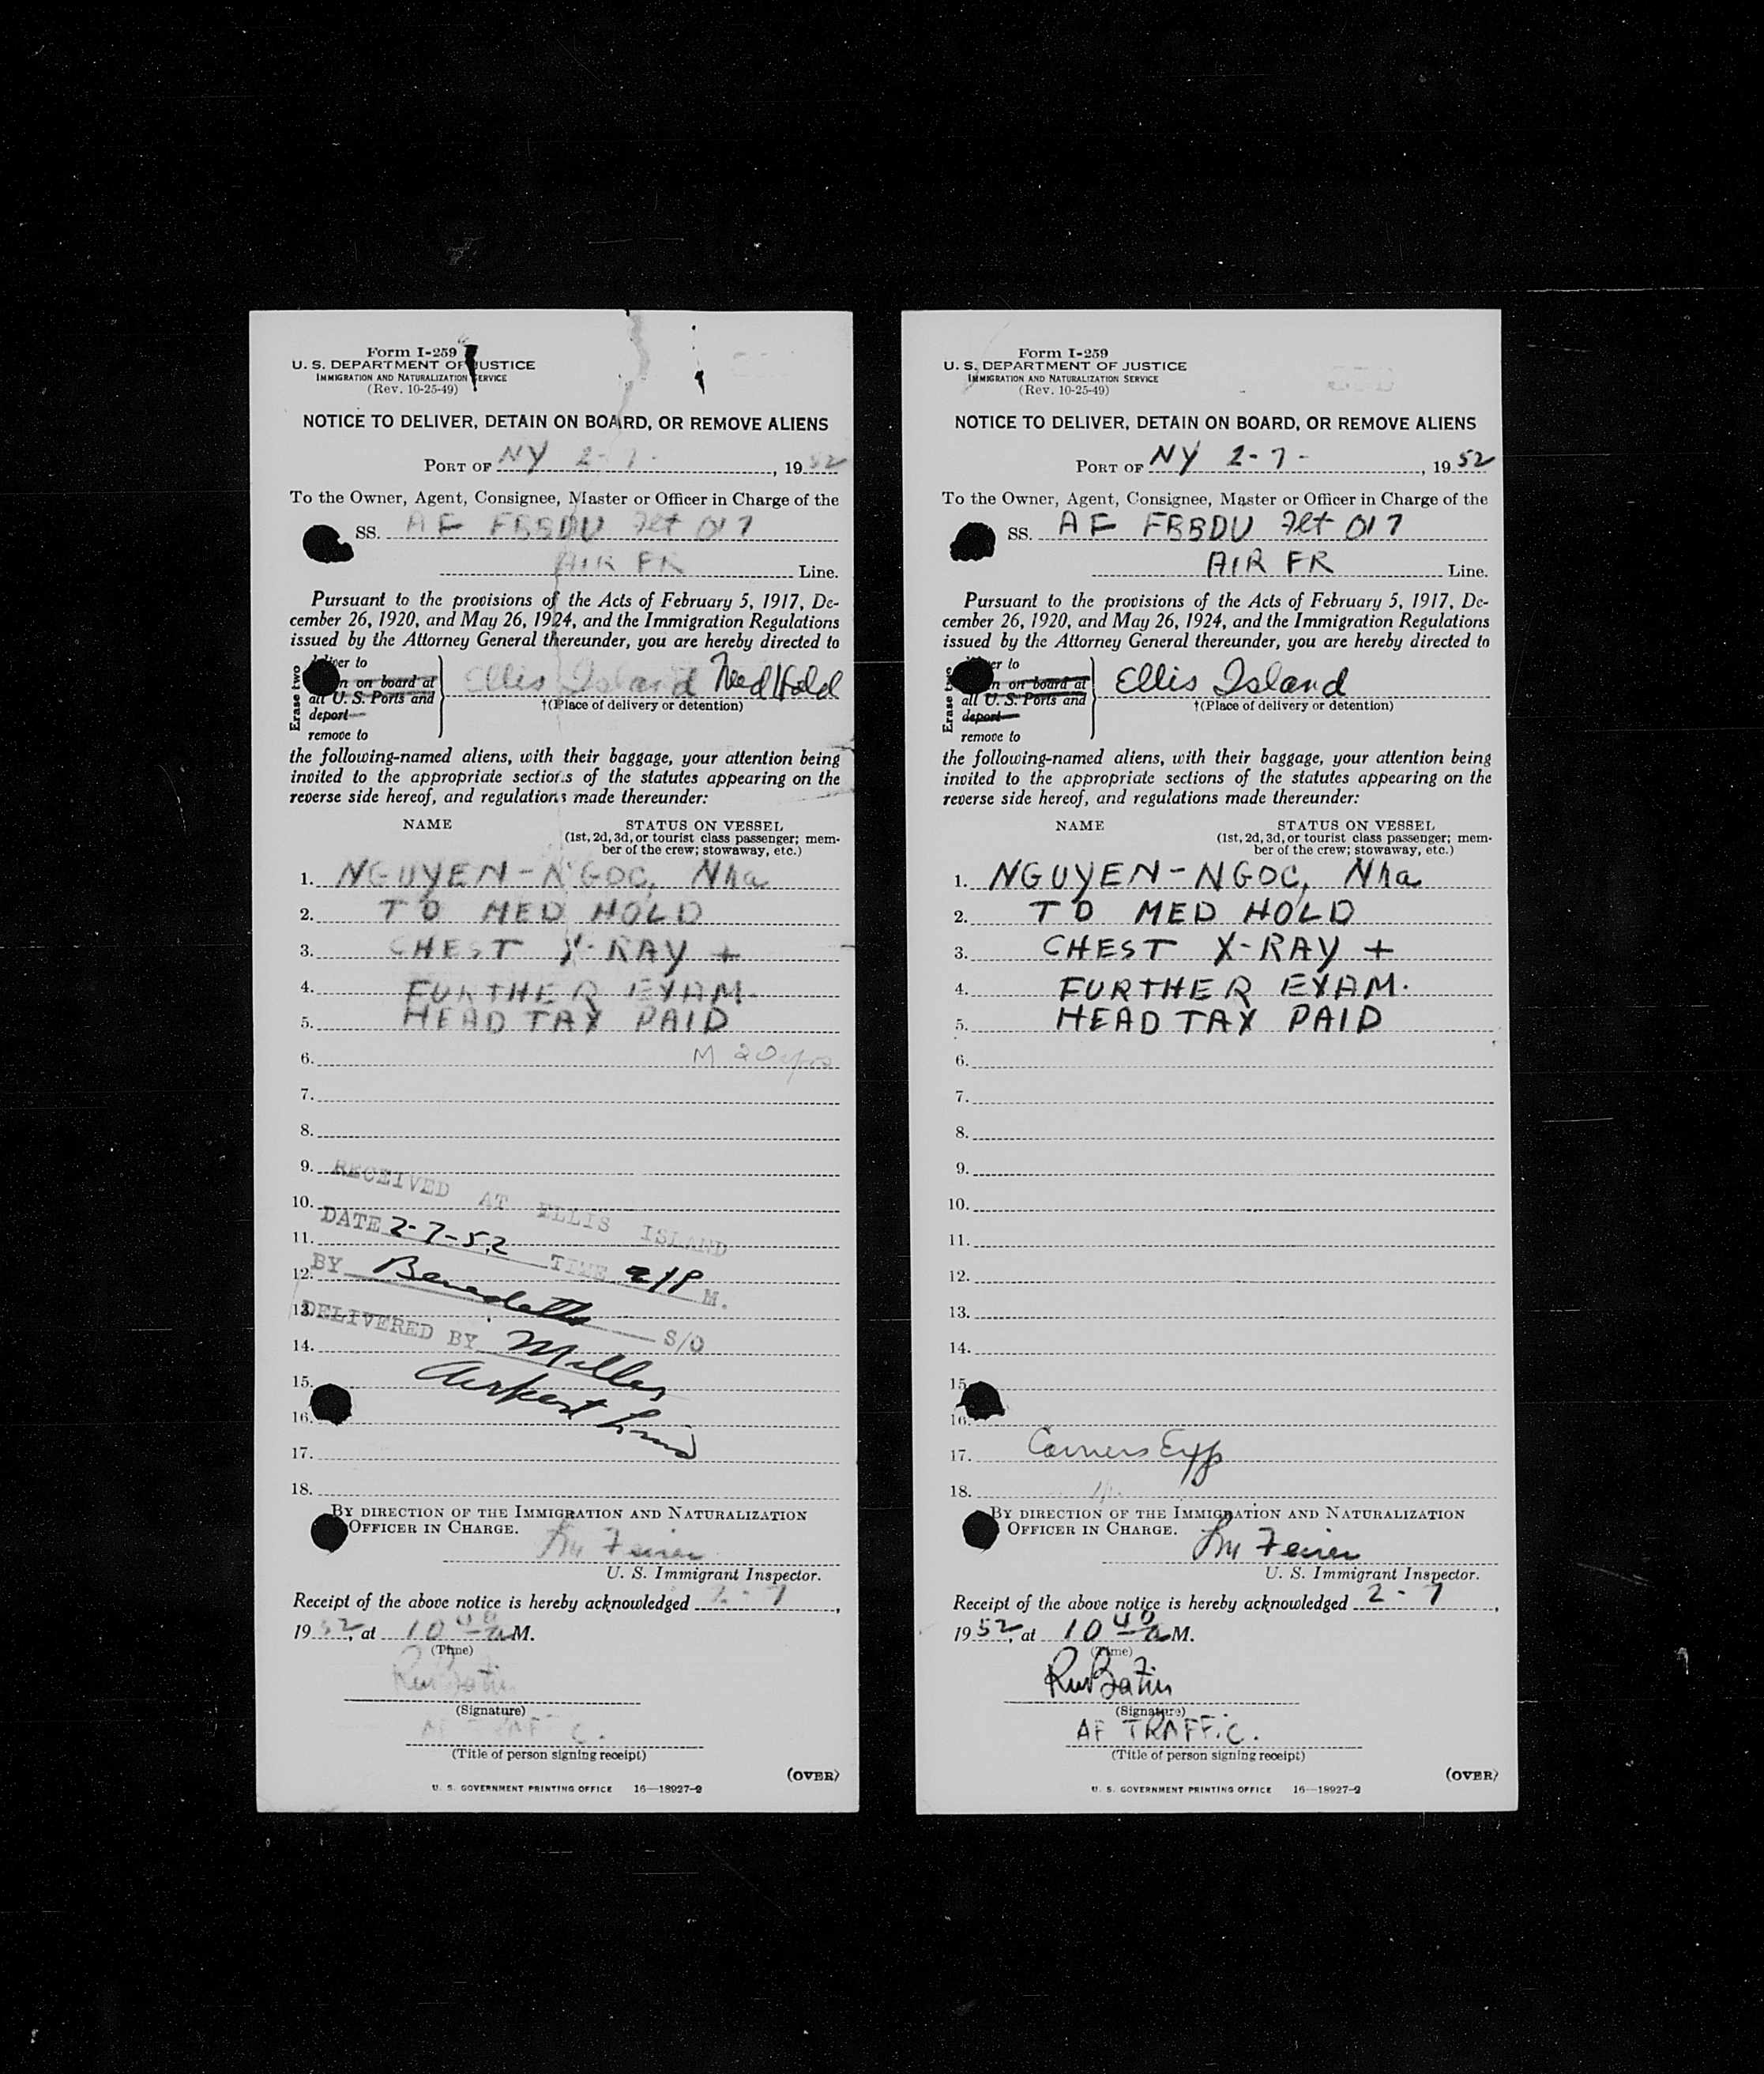 Form I-259
U. S. DEPARTMENT OF JUSTICE
IMMIGRATION AND NATURALIZATION SERVICE
(Rev. 10-25-49)
NOTICE TO DELIVER, DETAIN ON BOARD, OR REMOVE ALIENS
PORT OF NY 2-7- , 1952
To the Owner, Agent, Consignee, Master or Officer in Charge of the
SS. AF FBBDU Flt 017
AIR FR Line.
Pursuant to the provisions of the Acts of February 5, 1917, De-
cember 26, 1920, and May 26, 1924, and the Immigration Regulations
issued by the Attorney General thereunder, you are hereby directed to
Erase two
to
on board at
all U. S. Ports and
deport
remove to
Ellis Island Med Hold
†(Place of delivery or detention)
the following-named aliens, with their baggage, your attention being
invited to the appropriate sections of the statutes appearing on the
reverse side hereof, and regulations made thereunder:
NAME STATUS ON VESSEL
(1st, 2d, 3d, or tourist class passenger; mem-
ber of the crew; stowaway, etc.)
1. NGUYEN-NGOC, Nha
2. TO MED HOLD
3. CHEST X-RAY +
4. FURTHER EXAM.
5. HEAD TAX PAID
6. M 20 yrs
7.
8.
9.
10.
11.
12.
13.
14.
15.
16.
17.
18.
RECEIVED AT ELLIS ISLAND
DATE 2-7-52 TIME M.
BY Benedetto S/O
DELIVERED BY Miller
BY DIRECTION OF THE IMMIGRATION AND NATURALIZATION
OFFICER IN CHARGE.
U. S. Immigrant Inspector.
Receipt of the above notice is hereby acknowledged 2-7,
1952, at 10 40 a M.
(Time)
(Signature)
AF TRAFFIC.
(Title of person signing receipt)
(OVER)
U. S. GOVERNMENT PRINTING OFFICE 16—18927-2
Form I-259
U. S. DEPARTMENT OF JUSTICE
IMMIGRATION AND NATURALIZATION SERVICE
(Rev. 10-25-49)
NOTICE TO DELIVER, DETAIN ON BOARD, OR REMOVE ALIENS
PORT OF NY 2-7- , 1952
To the Owner, Agent, Consignee, Master or Officer in Charge of the
SS. AF FBBDU Flt 017
AIR FR Line.
Pursuant to the provisions of the Acts of February 5, 1917, De-
cember 26, 1920, and May 26, 1924, and the Immigration Regulations
issued by the Attorney General thereunder, you are hereby directed to
Erase two
to
on board at
all U. S. Ports and
deport
remove to
Ellis Island
†(Place of delivery or detention)
the following-named aliens, with their baggage, your attention being
invited to the appropriate sections of the statutes appearing on the
reverse side hereof, and regulations made thereunder:
NAME STATUS ON VESSEL
(1st, 2d, 3d, or tourist class passenger; mem-
ber of the crew; stowaway, etc.)
1. NGUYEN-NGOC, Nha
2. TO MED HOLD
3. CHEST X-RAY +
4. FURTHER EXAM.
5. HEAD TAX PAID
6.
7.
8.
9.
10.
11.
12.
13.
14.
15.
16.
17.
18.
BY DIRECTION OF THE IMMIGRATION AND NATURALIZATION
OFFICER IN CHARGE.
U. S. Immigrant Inspector.
Receipt of the above notice is hereby acknowledged 2-7,
1952, at 10 40 a M.
(Time)
(Signature)
AF TRAFFIC.
(Title of person signing receipt)
(OVER)
U. S. GOVERNMENT PRINTING OFFICE 16—18927-2